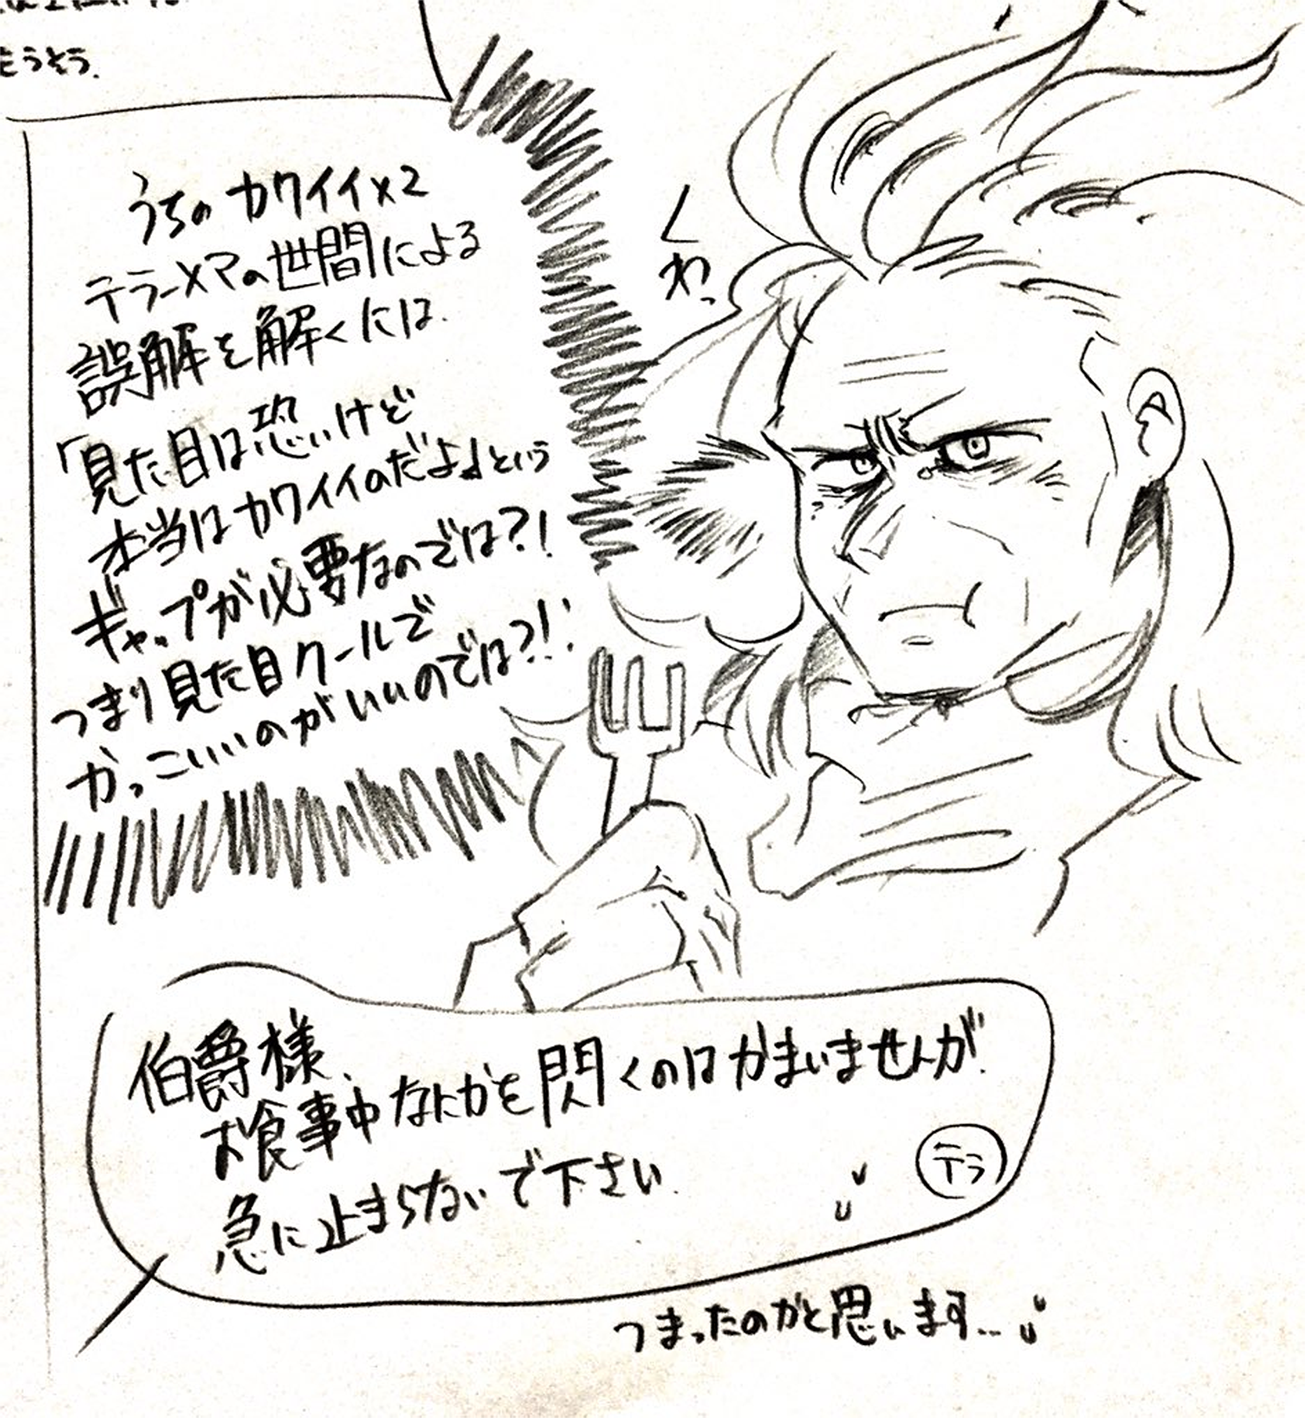 もうそう.
うちの カワイイ×2
テラーメアの世間による
誤解を解くには.
「見た目は恐いけど
本当はカワイイのだよ」という
ギャップが必要なのでは?!
つまり見た目クールで
かっこいいのがいいのでは?!!
くわっ
伯爵様、
お食事中なにかを閃くのはかまいませんが.
急に止まらないで下さい.
テラ
つまったのかと思います…